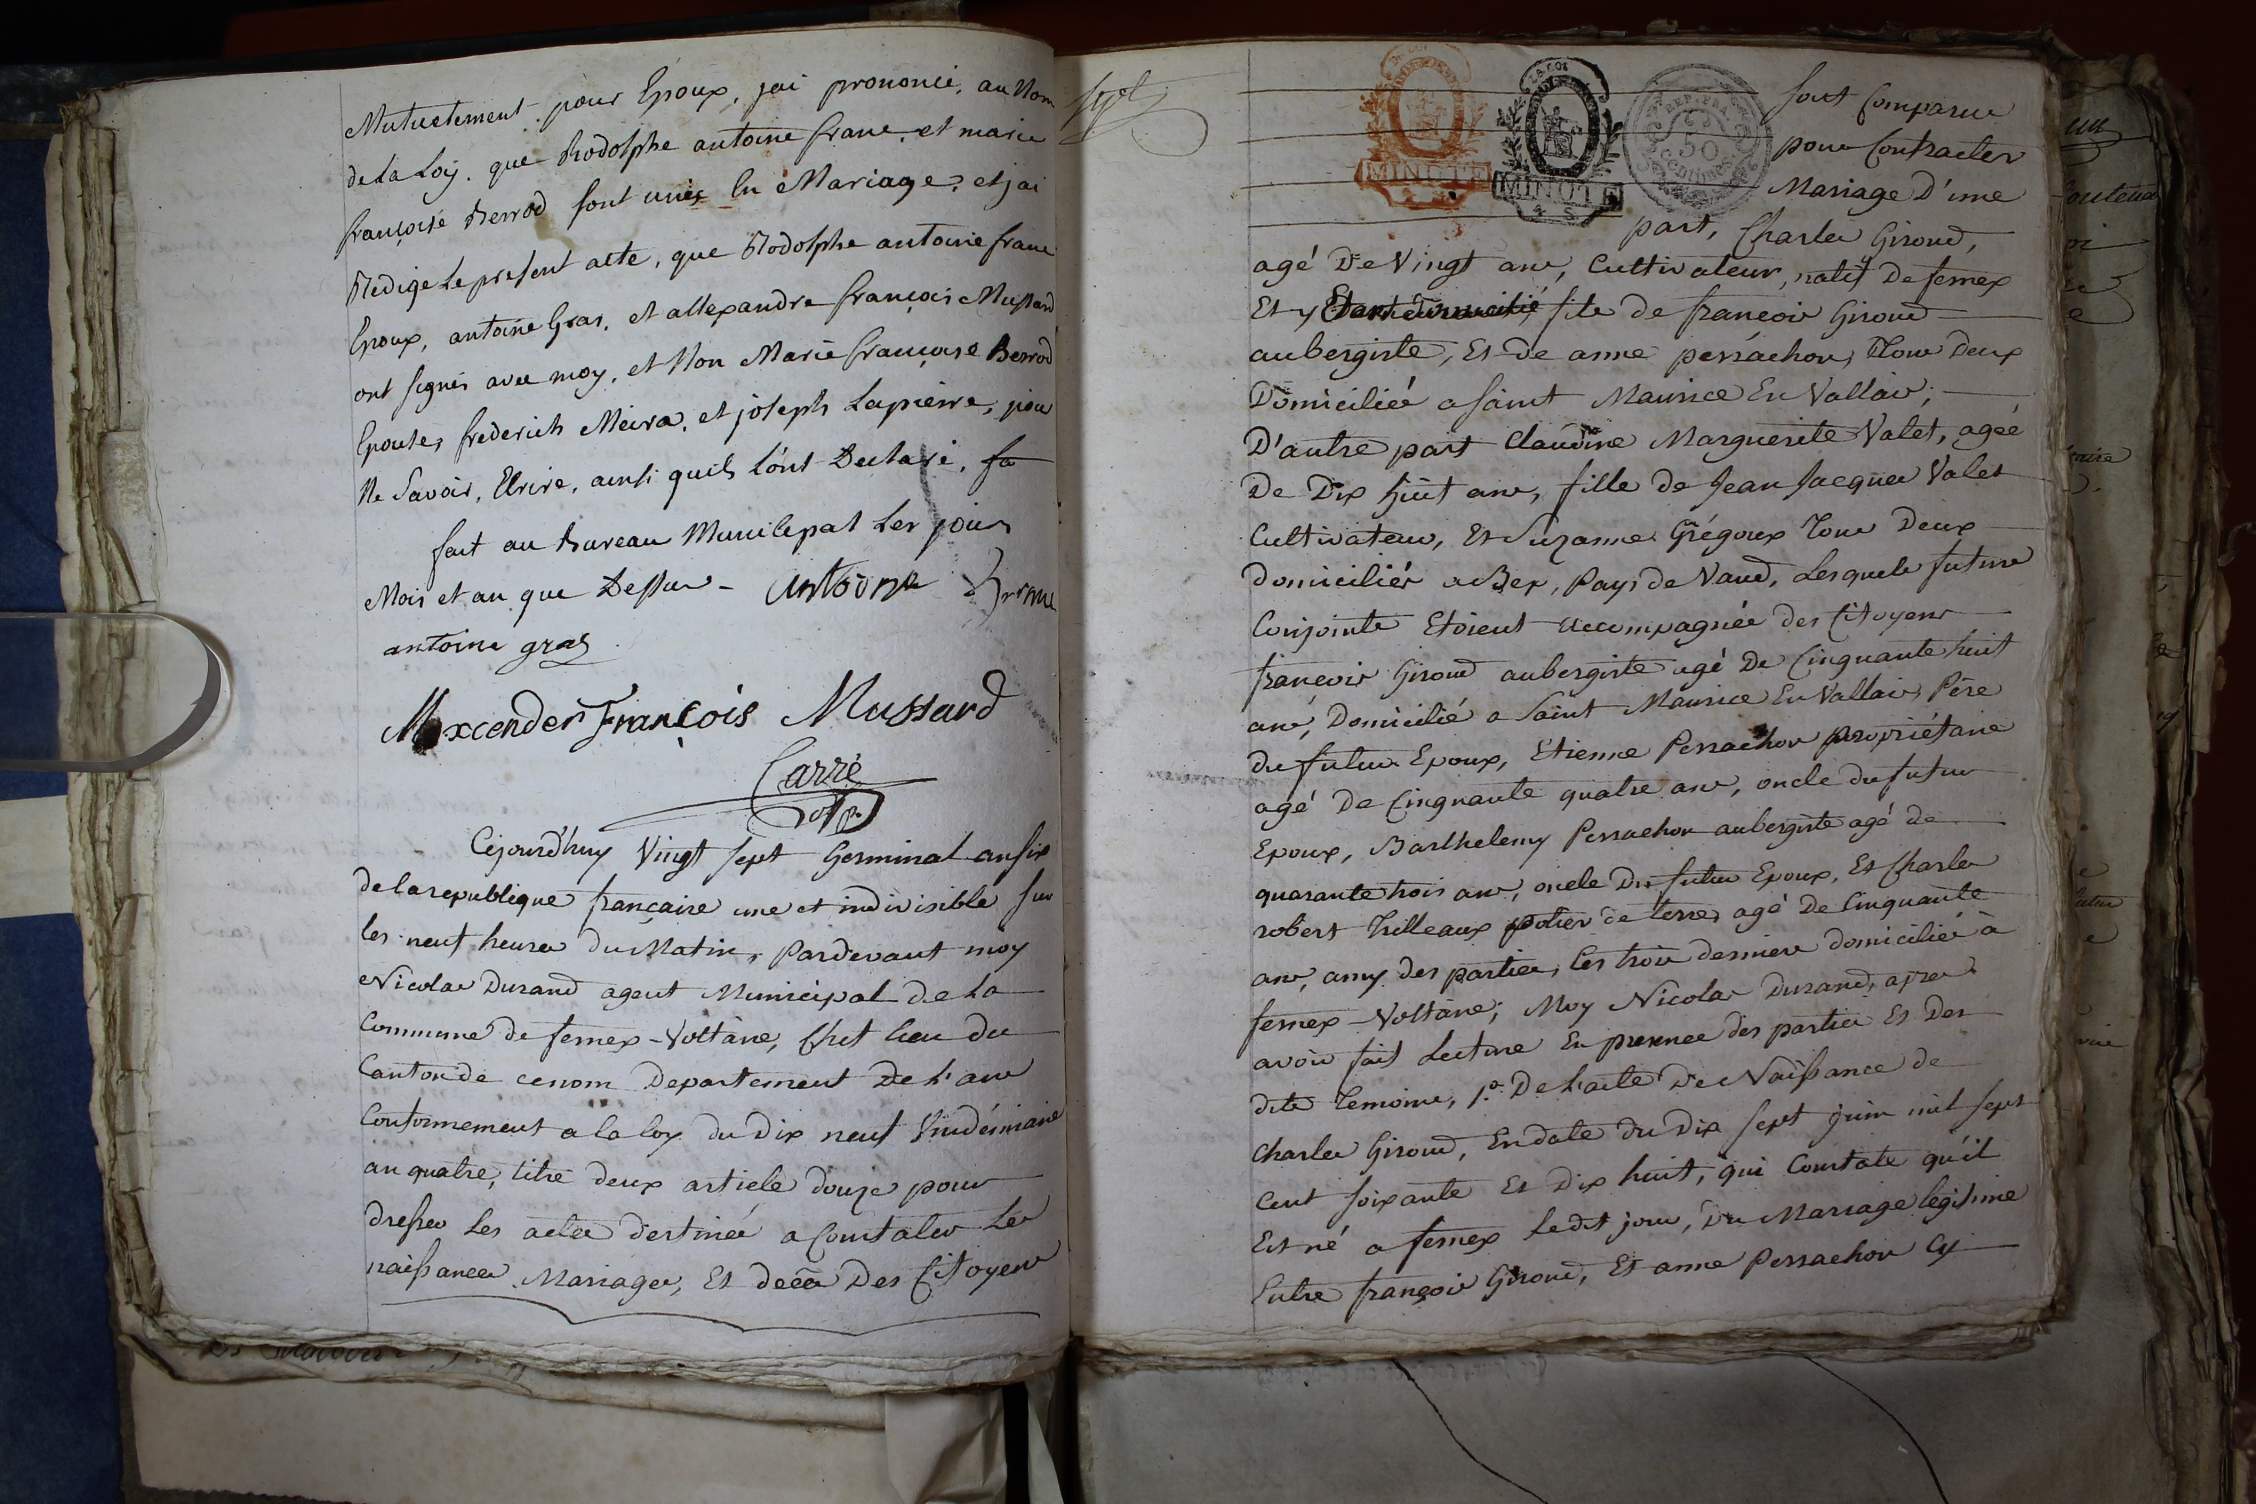 Mutuelement pour Epoux, jai prononcé, au Nom
de La Loy. que Rodolphe antoine franc, et marie
françoise Berrod sont unis En Mariage, et jai
Rédigé Le present acte, que Rodolphe antoine franc
Epoux, antoine Gras, et allexandre françois Mussard
ont signés avec moy, et Non Marie françoise Berrod
Epouse, frederich Meira, et joseph Lapierre, pour
Ne Savoir, Ecrire, ainsi quils L'ont Declaré,
fait au Bureau Municipal Les jour
Mois et an que Dessus - antoine franc
antoine gras
Alexcender François Mussard
Carré
Cejourd'huy Vingt sept Germinal an six
de la republique française une et indivisible sur
les neuf heures du Matin, Pardevant moy
Nicolas Durand agent Municipal de La
Commune de fernex-Voltaire, Chef lieu du
Canton de ce nom Departement De L'ain
Conformement a la loy du Dix neuf Vendémiaire
an quatre, titre deux article douze pour
dresser Les actes destinés a Constater Les
naissances Mariages, Et decès Des Citoyens
sept
LA LOI
LA LOI
MINUTE
4 S
MINUTE
4 S
REP. FRA.
50
centimes
sont Comparus
pour Contracter
Mariage D'une
part, Charles Giroud,
agé De Vingt ans, Cultivateur, natif De fernex
Et y fils de françois Giroud
aubergiste, Et de anne perrachon, Tous Deux
Domiciliés a Saint Maurice En Vallais;
D'autre part Claudine Marguerite Valet, agée
De Dix huit ans, fille de Jean Jacques Valet
Cultivateur, Et Suzanne Grégoux Tous Deux
domiciliés a Bex, Pays de Vaud, Lesquels futurs
Conjoints Etoient accompagnés des Citoyens
françois Giroud aubergiste agé De Cinquante huit
ans, Domicilié a Saint Maurice En Vallais, Père
du futur Epoux, Etienne Perrachon propriétaire
agé De Cinquante quatre ans, oncle du futur
Epoux, Barthelemy Perrachon aubergiste agé de
quarante trois ans, oncle du futur Epoux, Et Charles
robert Trilleaux potier de terre, agé De Cinquante
ans, amy des parties, Les trois derniers domiciliés à
fernex-Voltaire; Moy Nicolas Durand, apres
avoir fait Lecture En presence des parties Et Des
dits temoins, 1.º De L'acte De Naissance de
Charles Giroud, En date du Dix sept juin mil sept
Cent soixante Et Dix huit, qui Constate qu'il
Est né a fernex Ledit jour, Du Mariage légitime
Entre françois Giroud, Et anne Perrachon Cy